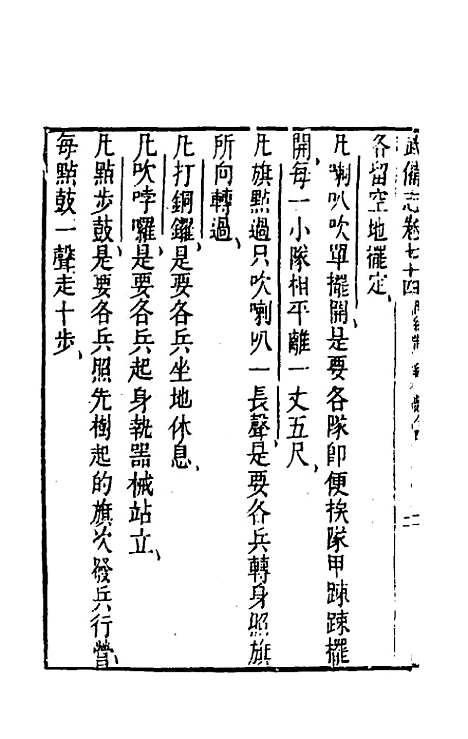 武備志卷七十四
各留空地擺定
凡喇叭吹單擺開是要各隊即便挨隊甲踈踈擺
開每一小隊相平離一丈五尺
凡旗點過只吹喇叭一長聲是要各兵轉身照旗
所向轉過
凡打銅鑼是要各兵坐地休息
凡吹哱囉是要各兵起身執器械站立
凡點步鼓是要各兵照先樹起的旗次發兵行營
每點鼓一聲走十步